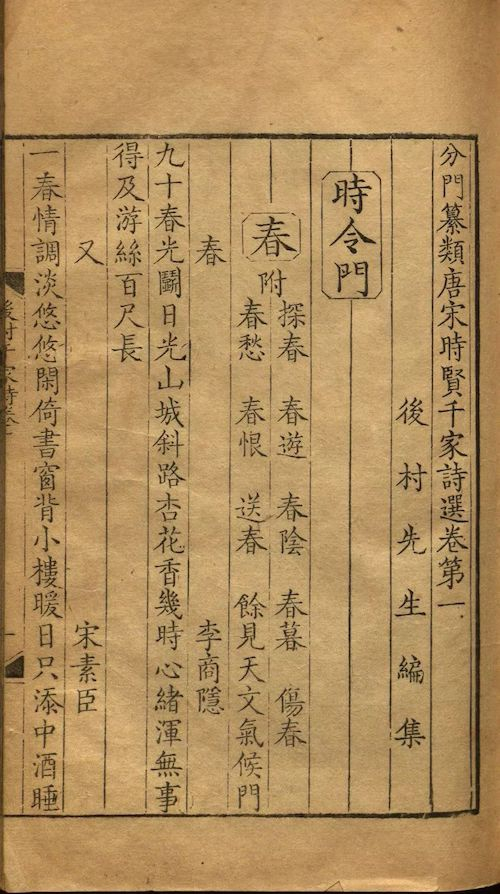 分門纂類唐宋時賢千家詩選卷第一
後村先生編集
時令門
春
附
探春 春遊 春陰 春暮 傷春
春愁 春恨 送春 餘見天文氣候門
春 李商隱
九十春光鬬日光山城斜路杏花香幾時心緒渾無事
得及游絲百尺長
又 宋素臣
一春情調淡悠悠閑倚書窗背小樓暖日只添中酒睡
後村千家詩卷一
一